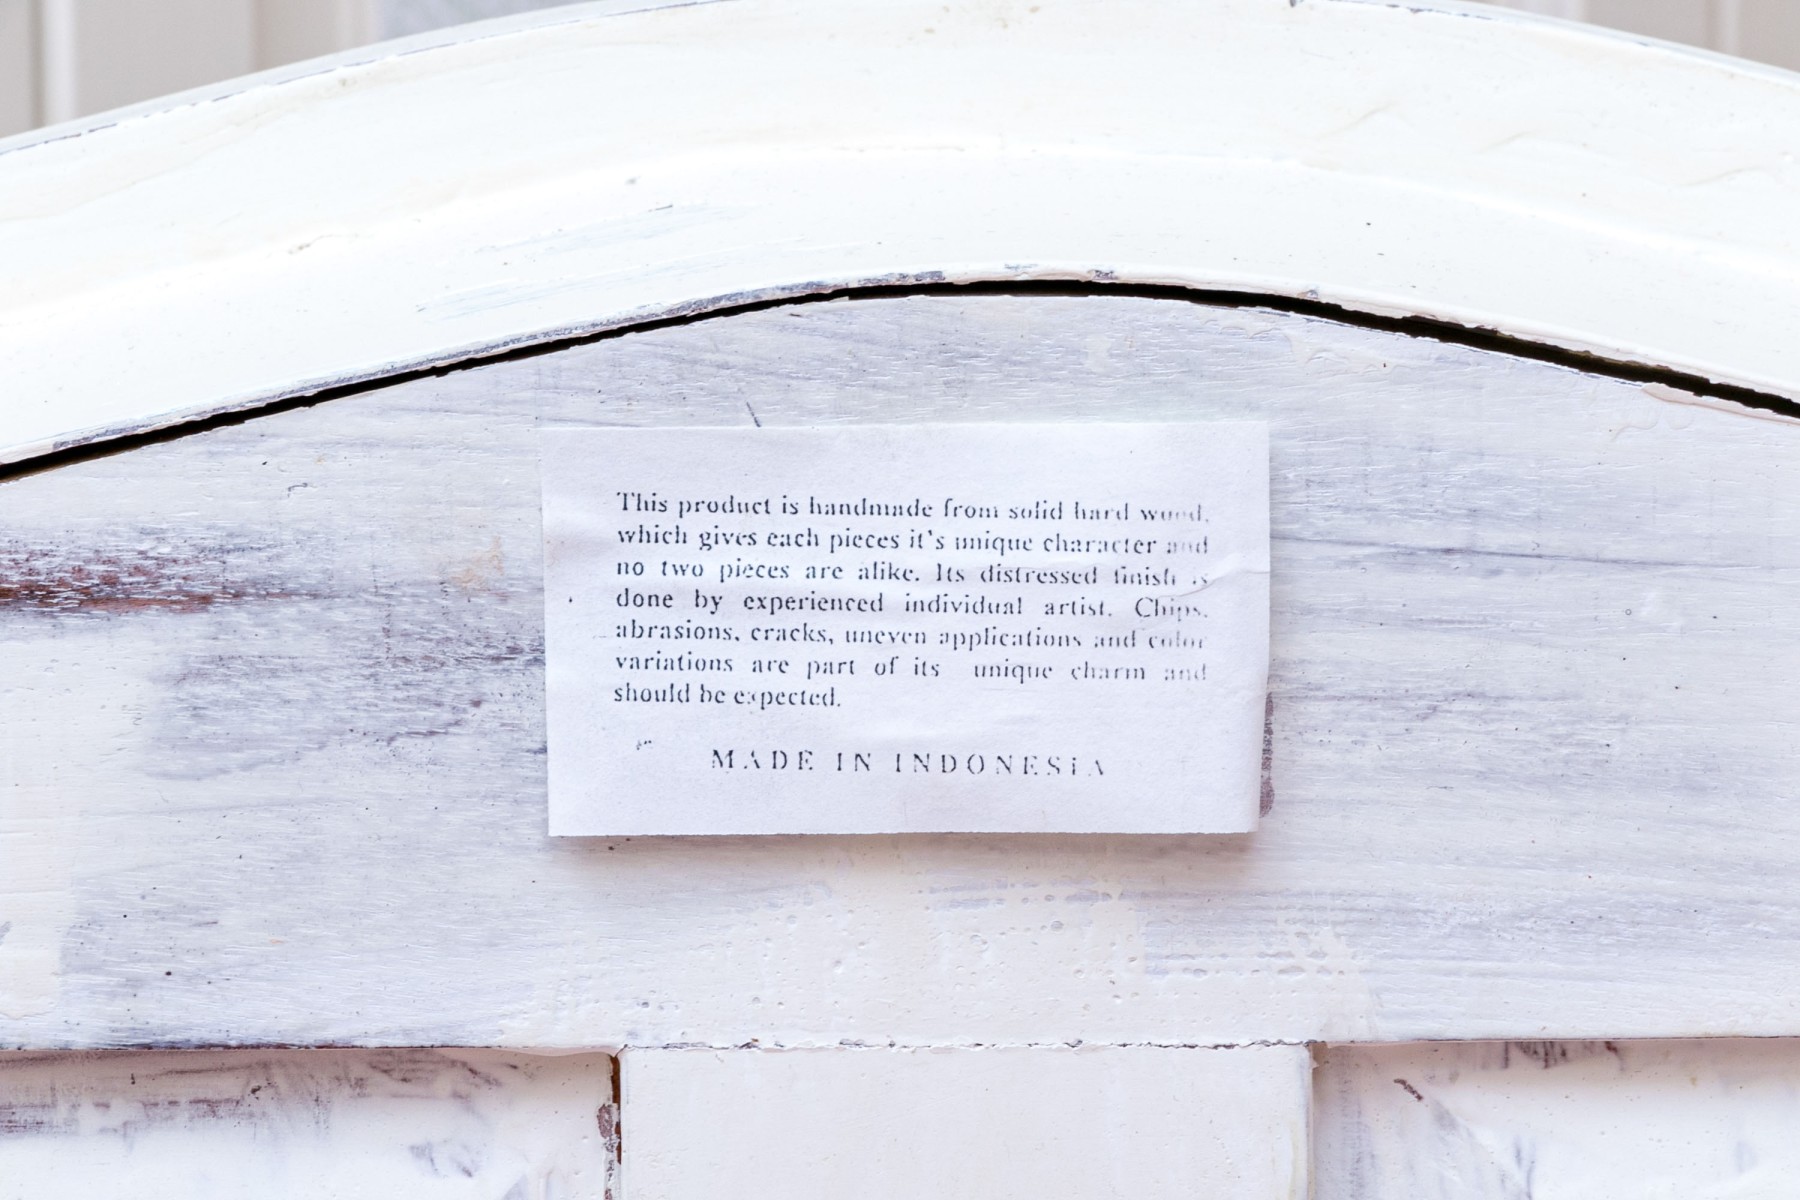 This product is handmade from solid hard wood,
which gives each pieces it's unique character and
no two pieces are alike. Its distressed finish is
done by experienced individual artist. Chips,
abrasions, cracks, uneven applications and color
variations are part of its unique charm and
should be expected.
MADE IN INDONESIA